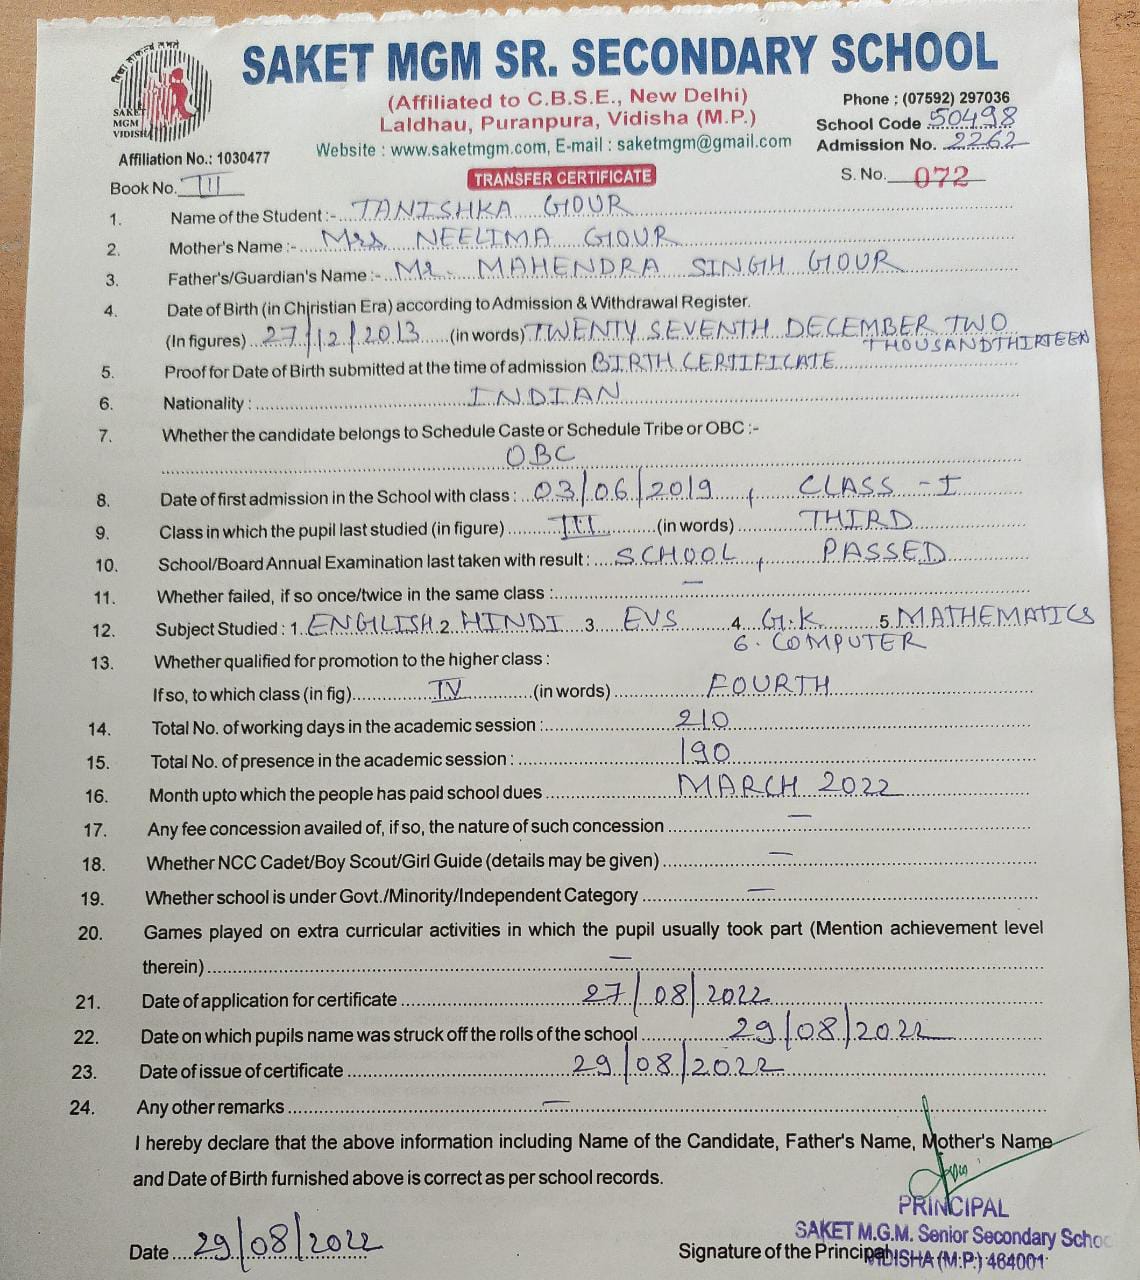 SAKET MGM SR. SECONDARY SCHOOL
(Affiliated to C.B.S.E., New Delhi)
Laldhau, Puranpura, Vidisha (M.P.)
Website : www.saketmgm.com, E-mail : saketmgm@gmail.com
Phone : (07592) 297036
School Code 50498
Admission No. 2262
SAKET
MGM
VIDISHA
Affiliation No.: 1030477
Book No. III
TRANSFER CERTIFICATE
S. No. 072
1. Name of the Student :- TANISHKA GOUR
2. Mother's Name :- Mrs NEELIMA GOUR
3. Father's/Guardian's Name :- Mr. MAHENDRA SINGH GOUR
4. Date of Birth (in Chiristian Era) according to Admission & Withdrawal Register.
(In figures) 27/12/2013 (in words) TWENTY SEVENTH DECEMBER TWO
THOUSAND THIRTEEN
5. Proof for Date of Birth submitted at the time of admission BIRTH CERTIFICATE
6. Nationality : INDIAN
7. Whether the candidate belongs to Schedule Caste or Schedule Tribe or OBC :-
OBC
8. Date of first admission in the School with class : 03/06/2019, CLASS - I
9. Class in which the pupil last studied (in figure) III (in words) THIRD
10. School/Board Annual Examination last taken with result : SCHOOL, PASSED
11. Whether failed, if so once/twice in the same class : —
12. Subject Studied : 1. ENGLISH 2. HINDI 3. EVS 4. G.K 5. MATHEMATICS
6. COMPUTER
13. Whether qualified for promotion to the higher class :
If so, to which class (in fig) IV (in words) FOURTH
14. Total No. of working days in the academic session : 210
15. Total No. of presence in the academic session : 190
16. Month upto which the people has paid school dues MARCH 2022
17. Any fee concession availed of, if so, the nature of such concession —
18. Whether NCC Cadet/Boy Scout/Girl Guide (details may be given) —
19. Whether school is under Govt./Minority/Independent Category —
20. Games played on extra curricular activities in which the pupil usually took part (Mention achievement level
therein) —
21. Date of application for certificate 27/08/2022
22. Date on which pupils name was struck off the rolls of the school 29/08/2022
23. Date of issue of certificate 29/08/2022
24. Any other remarks —
I hereby declare that the above information including Name of the Candidate, Father's Name, Mother's Name
and Date of Birth furnished above is correct as per school records.
PRINCIPAL
SAKET M.G.M. Senior Secondary School
VIDISHA (M.P.) 464001
Date 29/08/2022
Signature of the Principal